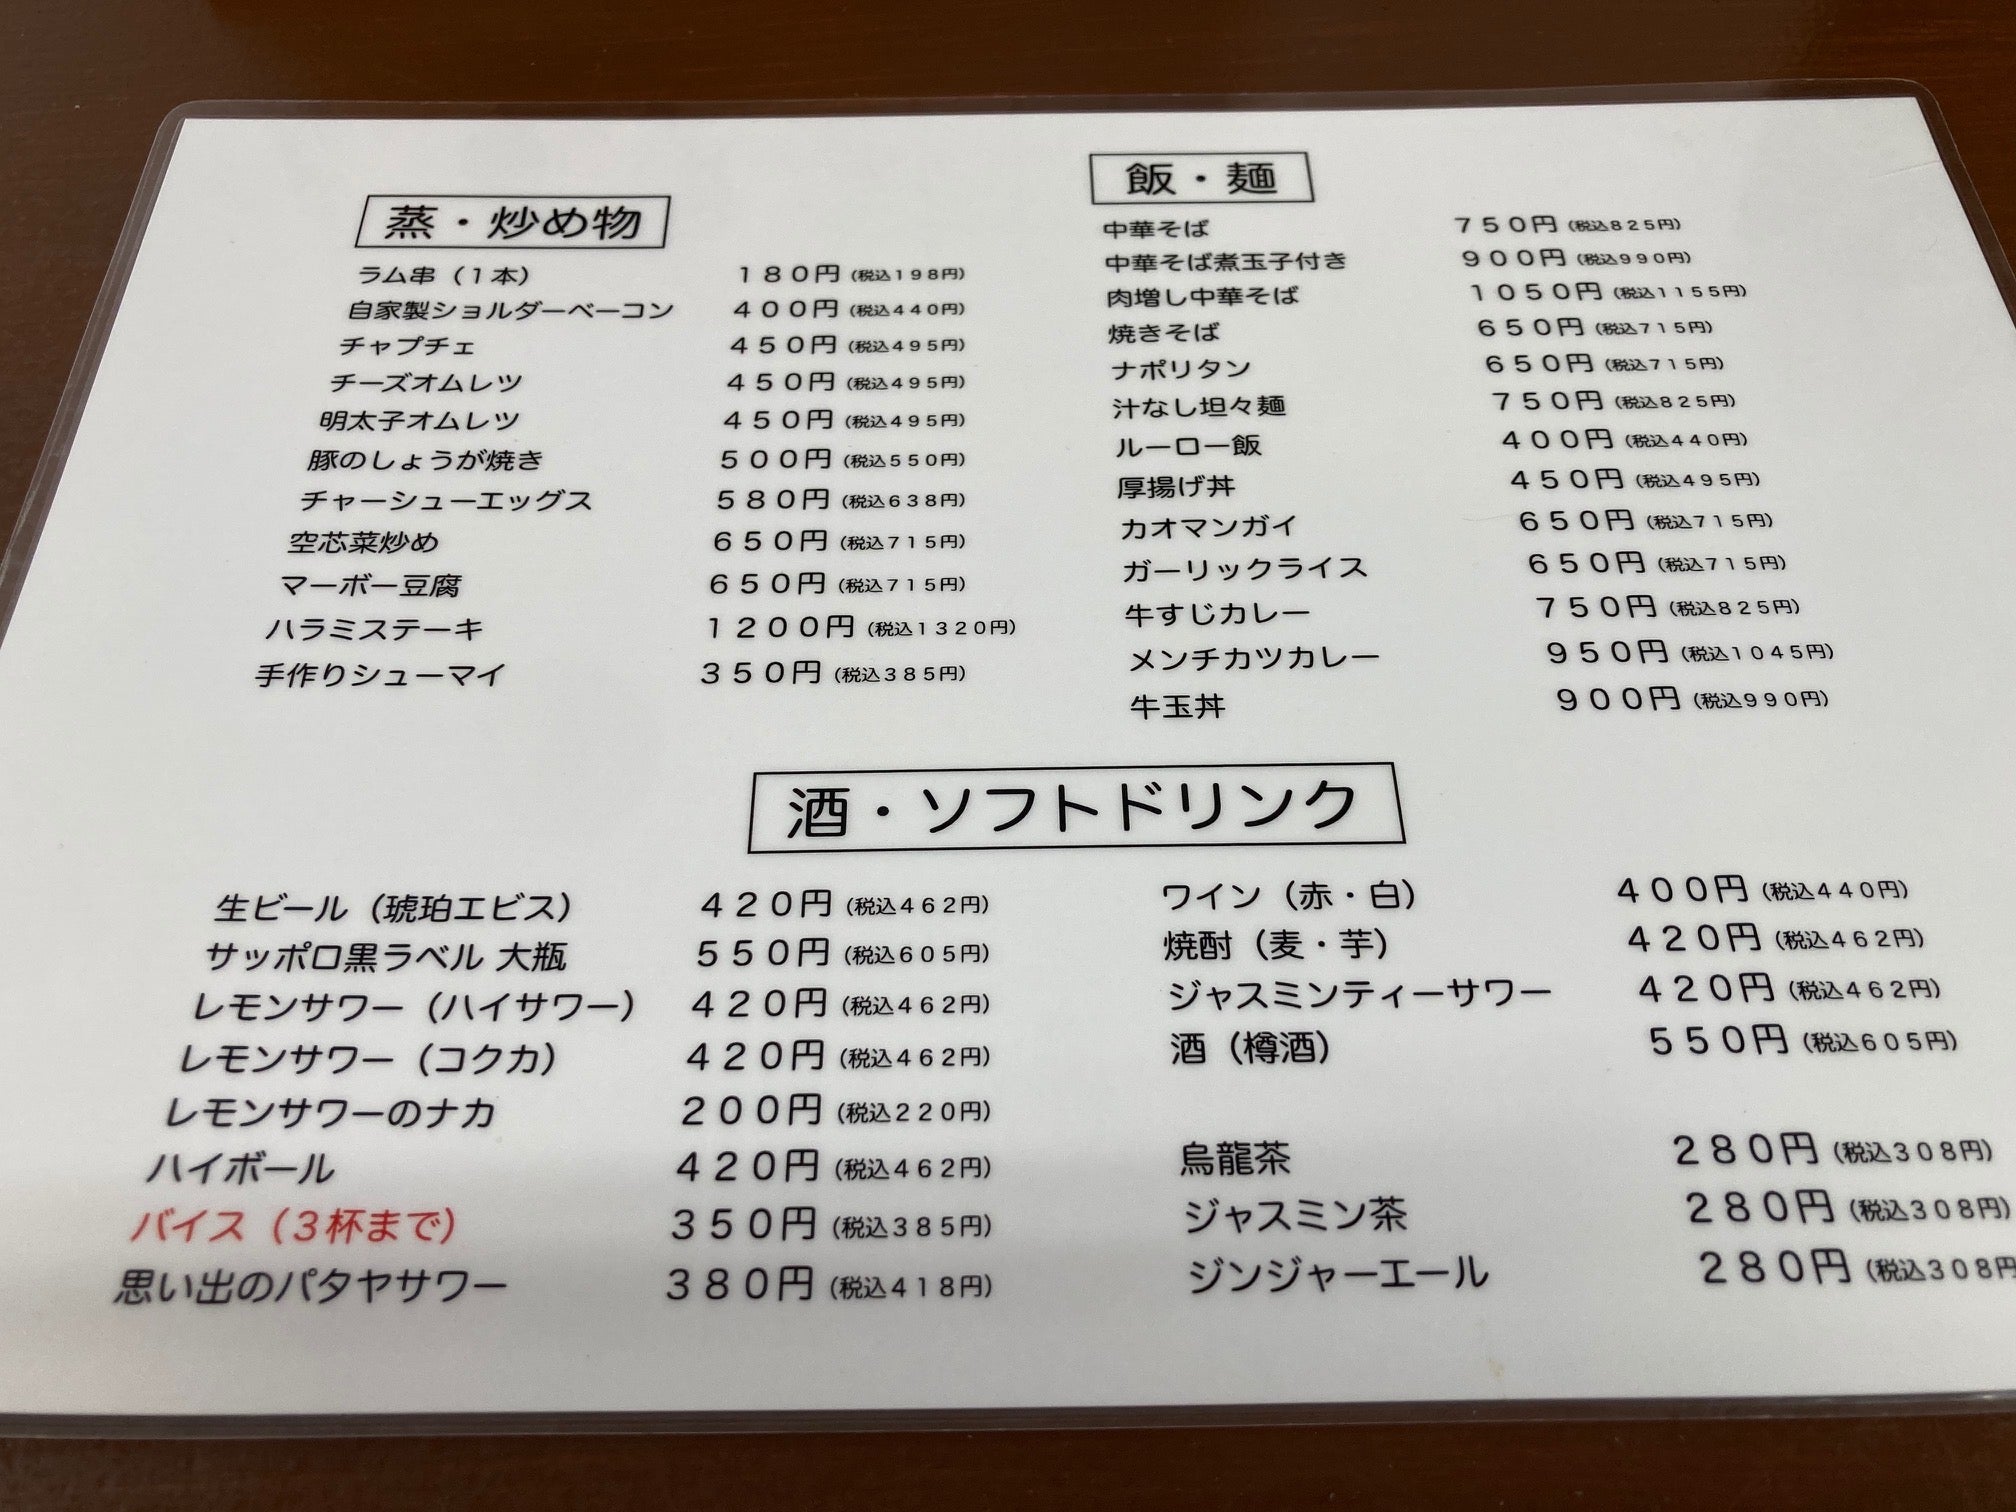 蒸・炒め物
ラム串（１本） １８０円（税込１９８円）
自家製ショルダーベーコン ４００円（税込４４０円）
チャプチェ ４５０円（税込４９５円）
チーズオムレツ ４５０円（税込４９５円）
明太子オムレツ ４５０円（税込４９５円）
豚のしょうが焼き ５００円（税込５５０円）
チャーシューエッグス ５８０円（税込６３８円）
空芯菜炒め ６５０円（税込７１５円）
マーボー豆腐 ６５０円（税込７１５円）
ハラミステーキ １２００円（税込１３２０円）
手作りシューマイ ３５０円（税込３８５円）
飯・麺
中華そば ７５０円（税込８２５円）
中華そば煮玉子付き ９００円（税込９９０円）
肉増し中華そば １０５０円（税込１１５５円）
焼きそば ６５０円（税込７１５円）
ナポリタン ６５０円（税込７１５円）
汁なし坦々麺 ７５０円（税込８２５円）
ルーロー飯 ４００円（税込４４０円）
厚揚げ丼 ４５０円（税込４９５円）
カオマンガイ ６５０円（税込７１５円）
ガーリックライス ６５０円（税込７１５円）
牛すじカレー ７５０円（税込８２５円）
メンチカツカレー ９５０円（税込１０４５円）
牛玉丼 ９００円（税込９９０円）
酒・ソフトドリンク
生ビール（琥珀エビス） ４２０円（税込４６２円）
サッポロ黒ラベル 大瓶 ５５０円（税込６０５円）
レモンサワー（ハイサワー） ４２０円（税込４６２円）
レモンサワー（コクカ） ４２０円（税込４６２円）
レモンサワーのナカ ２００円（税込２２０円）
ハイボール ４２０円（税込４６２円）
バイス（３杯まで） ３５０円（税込３８５円）
思い出のパタヤサワー ３８０円（税込４１８円）
ワイン（赤・白） ４００円（税込４４０円）
焼酎（麦・芋） ４２０円（税込４６２円）
ジャスミンティーサワー ４２０円（税込４６２円）
酒（樽酒） ５５０円（税込６０５円）
烏龍茶 ２８０円（税込３０８円）
ジャスミン茶 ２８０円（税込３０８円）
ジンジャーエール ２８０円（税込３０８円